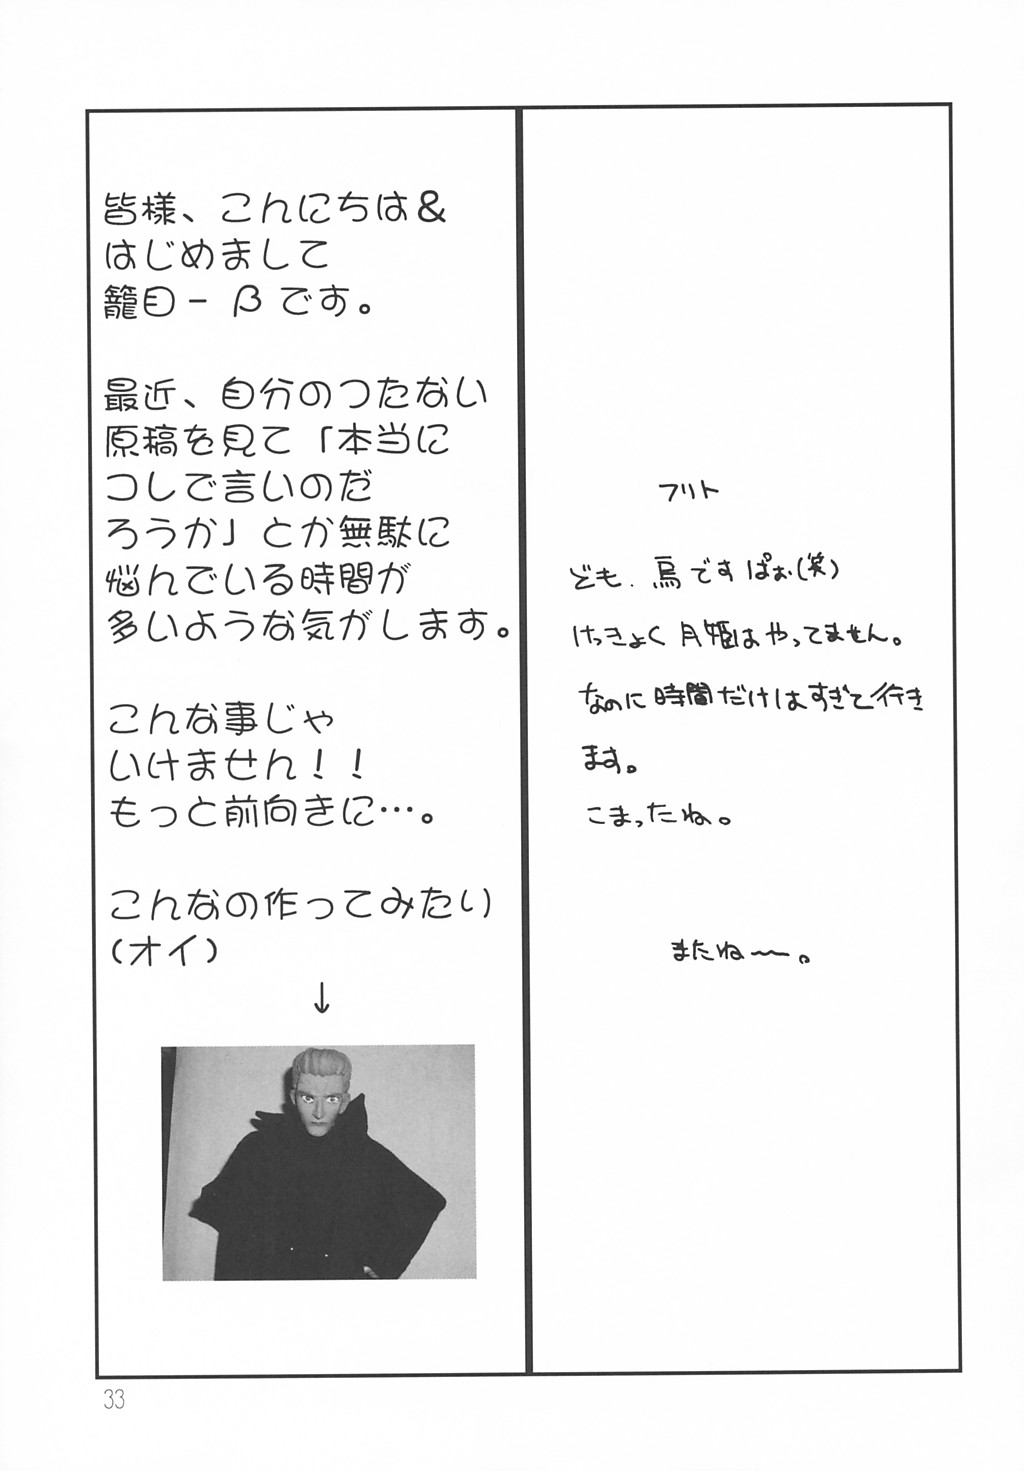 皆様、こんにちは＆
はじめまして
籠目－βです。
最近、自分のつたない
原稿を見て「本当に
コレで言いのだ
ろうか」とか無駄に
悩んでいる時間が
多いような気がします。
こんな事じゃ
いけません！！
もっと前向きに…。
こんなの作ってみたい
(オイ)
↓
フリト
ども、鳥ですぱぉ(笑)
けっきょく月姫はやってません。
なのに時間だけはすぎて行き
ます。
こまったね。
またね〜。
33